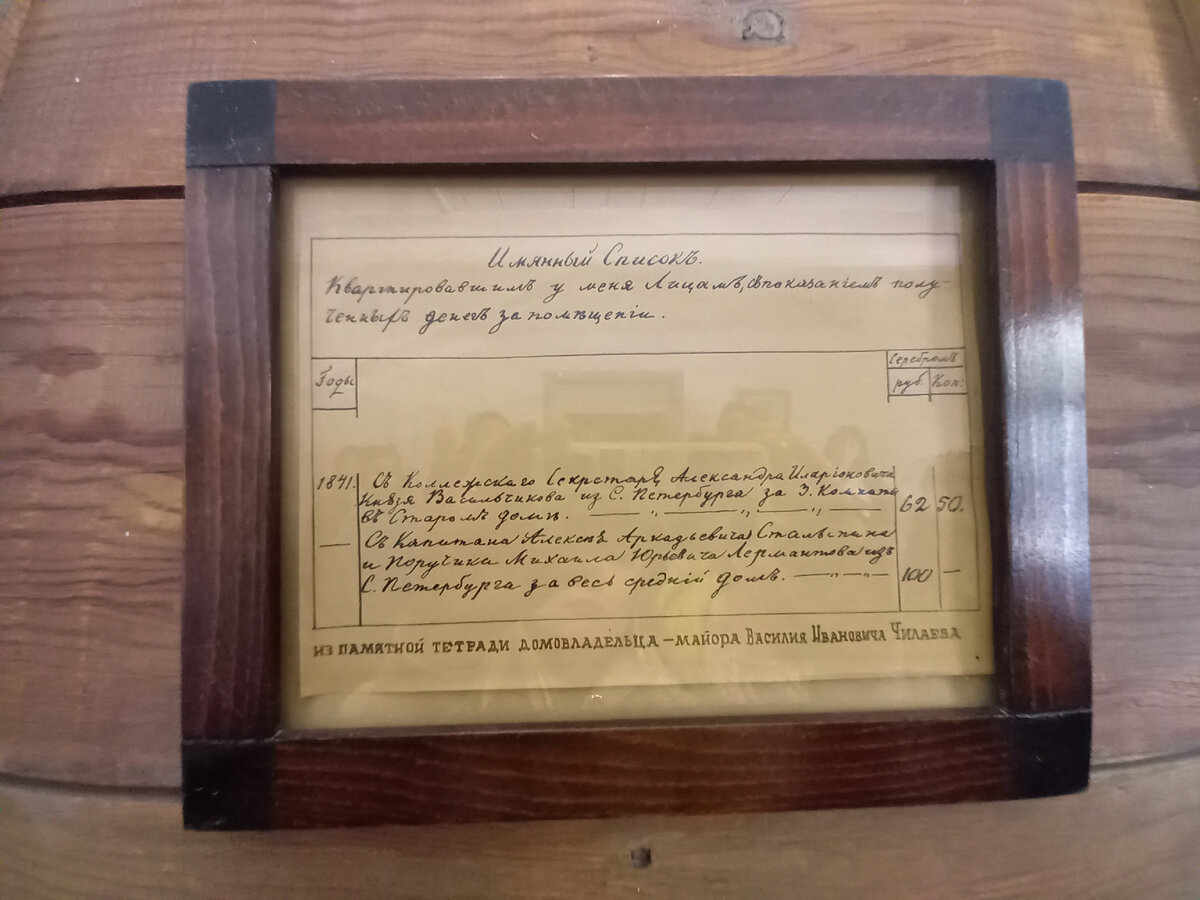 Имянный Списокъ.
Квартировавшимъ у меня Лицамъ, съ показаніемъ полу-
ченныхъ денегъ за помѣщеніи.
Годы
Серебромъ
руб. Коп:
1841. Съ Коллежскаго Секретаря, Александра Иларіоновича
Князя Васильчикова из С. Петербурга за 3. Комнаты
въ Старомъ домѣ. — „ — „ — „ — 62 50.
— Съ Капитана Алексѣя Аркадьевича Столыпина
и Поручика Михаила Юрьевича Лермантова изъ
С. Петербурга за весь средній домъ. — „ — „ — 100 —
ИЗ ПАМЯТНОЙ ТЕТРАДИ ДОМОВЛАДЕЛЬЦА — МАЙОРА ВАСИЛИЯ ИВАНОВИЧА ЧИЛАЕВА